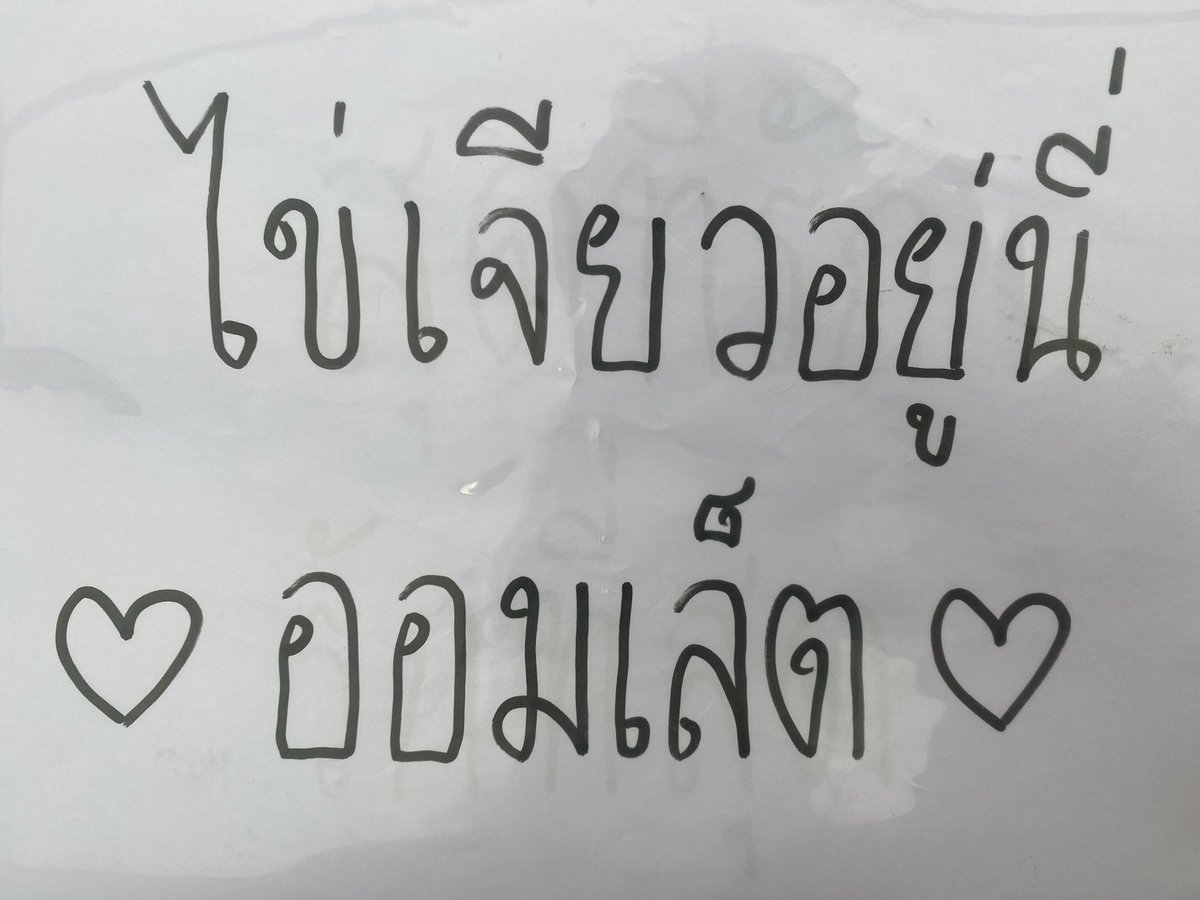 ไข่เจียวอยู่นี่
♡ ออมเล็ต ♡